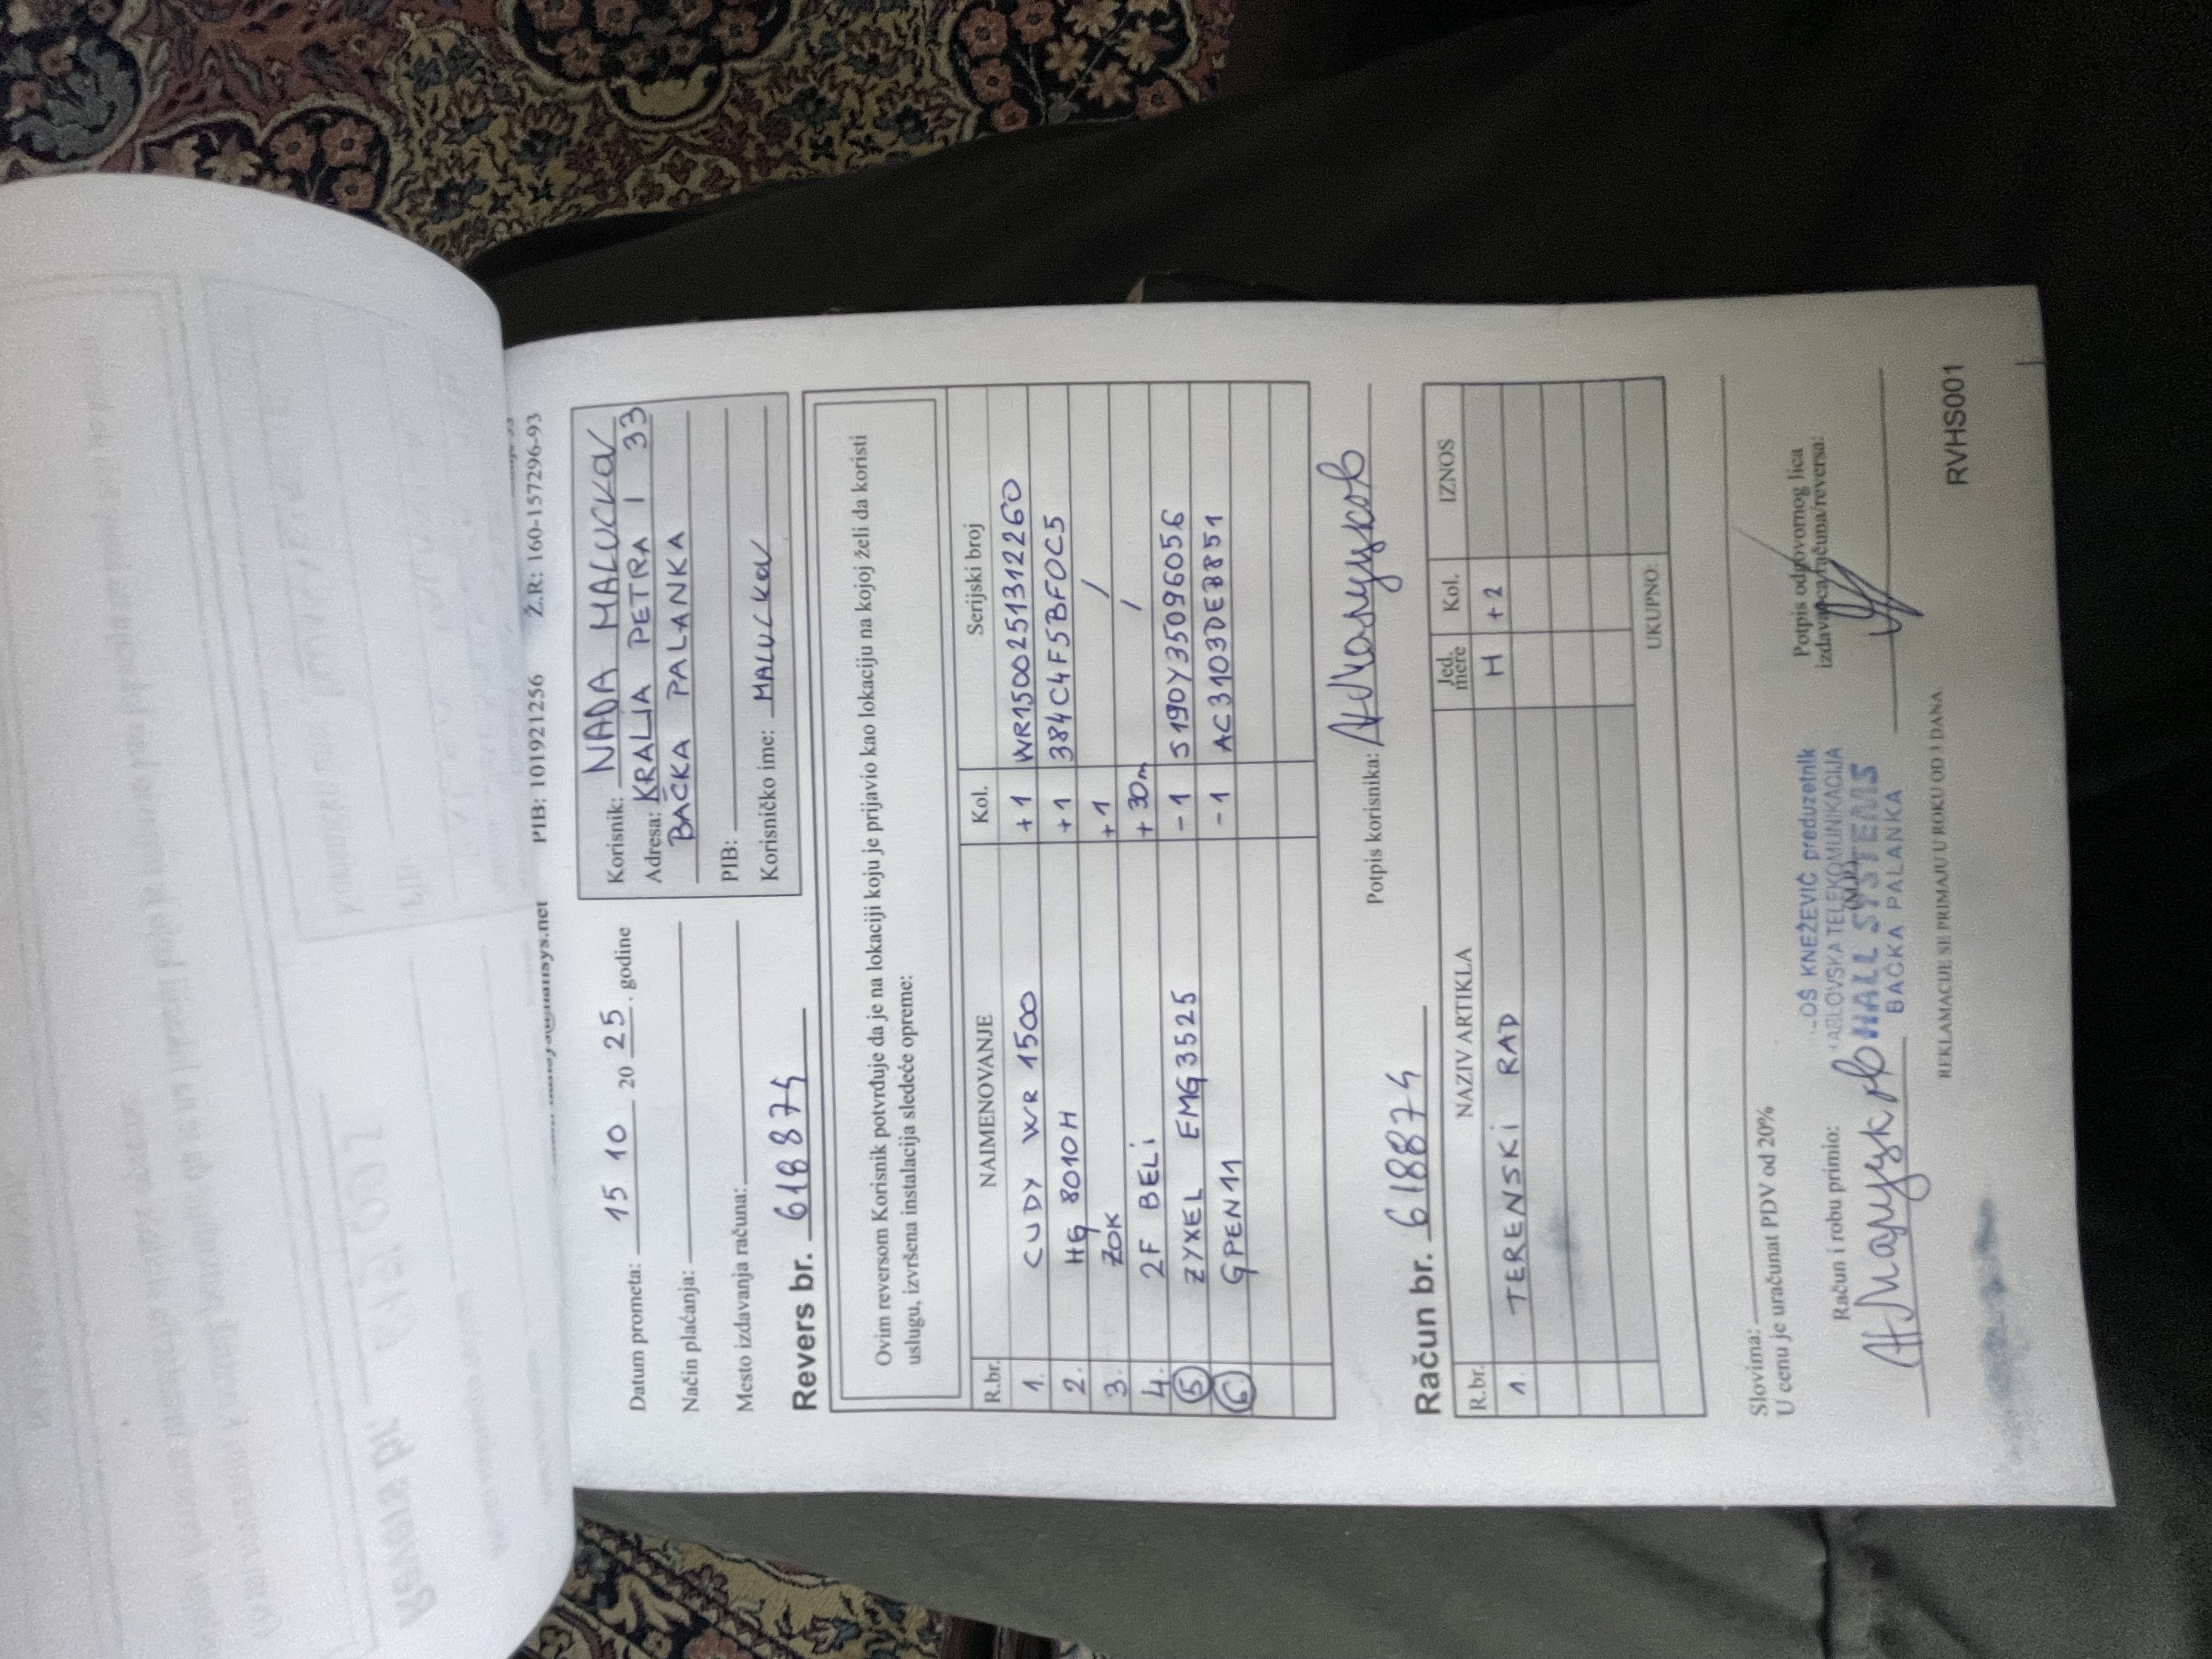 PIB: 101921256 Ž.R: 160-157296-93
Datum prometa: 15 10 20 25. godine
Način plaćanja:
Mesto izdavanja računa:
Korisnik: NADA MALUCKOV
Adresa: KRALJA PETRA I 33
BAČKA PALANKA
PIB:
Korisničko ime: MALUCKOV
Revers br. 618874
Ovim reversom Korisnik potvrđuje da je na lokaciji koju je prijavio kao lokaciju na kojoj želi da koristi
uslugu, izvršena instalacija sledeće opreme:
R.br. NAIMENOVANJE Kol. Serijski broj
1. CUDY WR 1500 +1 WR1500251312260
2. HG 8010H +1 384C4F5BF0C5
3. ZOK +1 /
4. 2F BELI +30m /
5 ZYXEL EMG3525 -1 S190Y35096056
6 GPEN11 -1 AC3103DEB851
Potpis korisnika:
Račun br. 618874
R.br. NAZIV ARTIKLA Jed. mere Kol. IZNOS
1. TERENSKI RAD H +2
UKUPNO:
Slovima:
U cenu je uračunat PDV od 20%
Račun i robu primio:
Potpis odgovornog lica
izdavaoca računa/reversa:
OŠ KNEŽEVIĆ preduzetnik
KABLOVSKA TELEKOMUNIKACIJA
HALL SYSTEMS
BAČKA PALANKA
(M.P.)
REKLAMACIJE SE PRIMAJU U ROKU OD 3 DANA
RVHS001